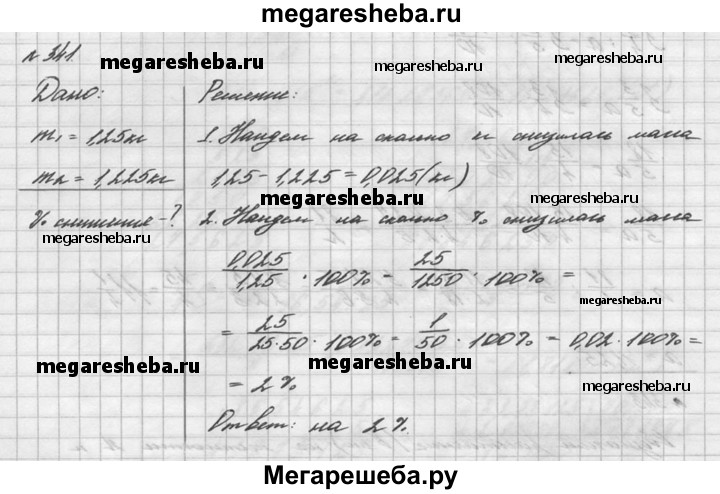 megaresheba.ru
№ 341.
megaresheba.ru
megaresheba.ru
Дано:
Решение:
m₁ = 1,25 кг
1. Найдем на сколько кг снизилась масса
m₂ = 1,225 кг
1,25 - 1,225 = 0,025 (кг)
megaresheba.ru
megaresheba.ru
% снижение - ?
2. Найдем на сколько % снизилась масса
megaresheba.ru
0,025/1,25 · 100% = 25/1250 · 100% =
megaresheba.ru
= 25/25·50 · 100% = 1/50 · 100% = 0,02 · 100% =
megaresheba.ru
megaresheba.ru
= 2%
megaresheba.ru
Ответ: на 2%.
Мегарешеба.ру